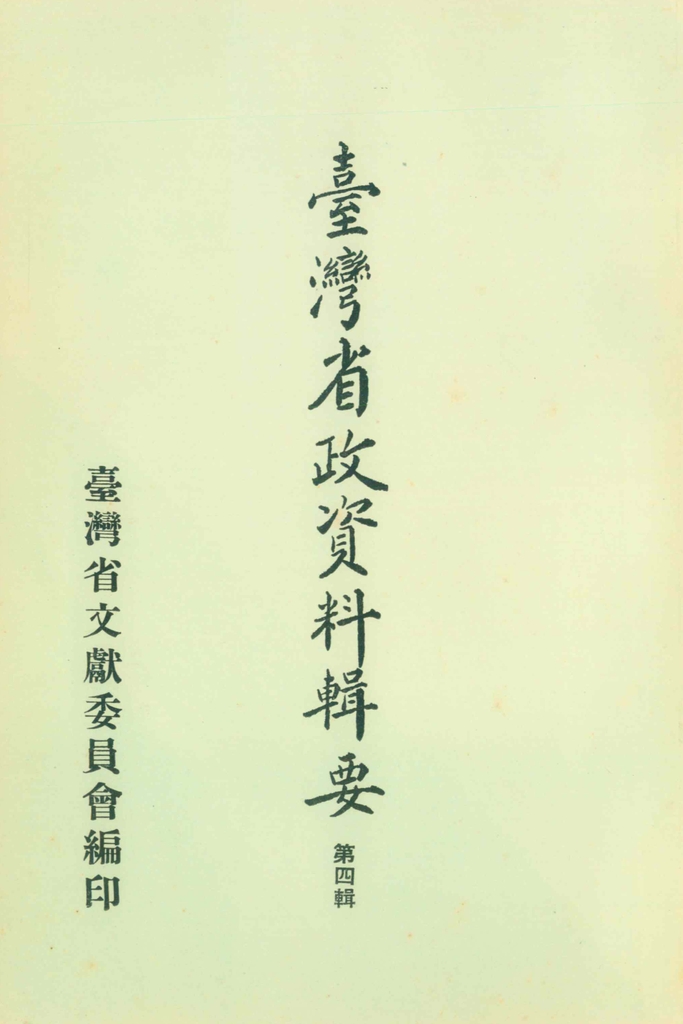 臺灣省政資料輯要
第四輯
臺灣省文獻委員會編印